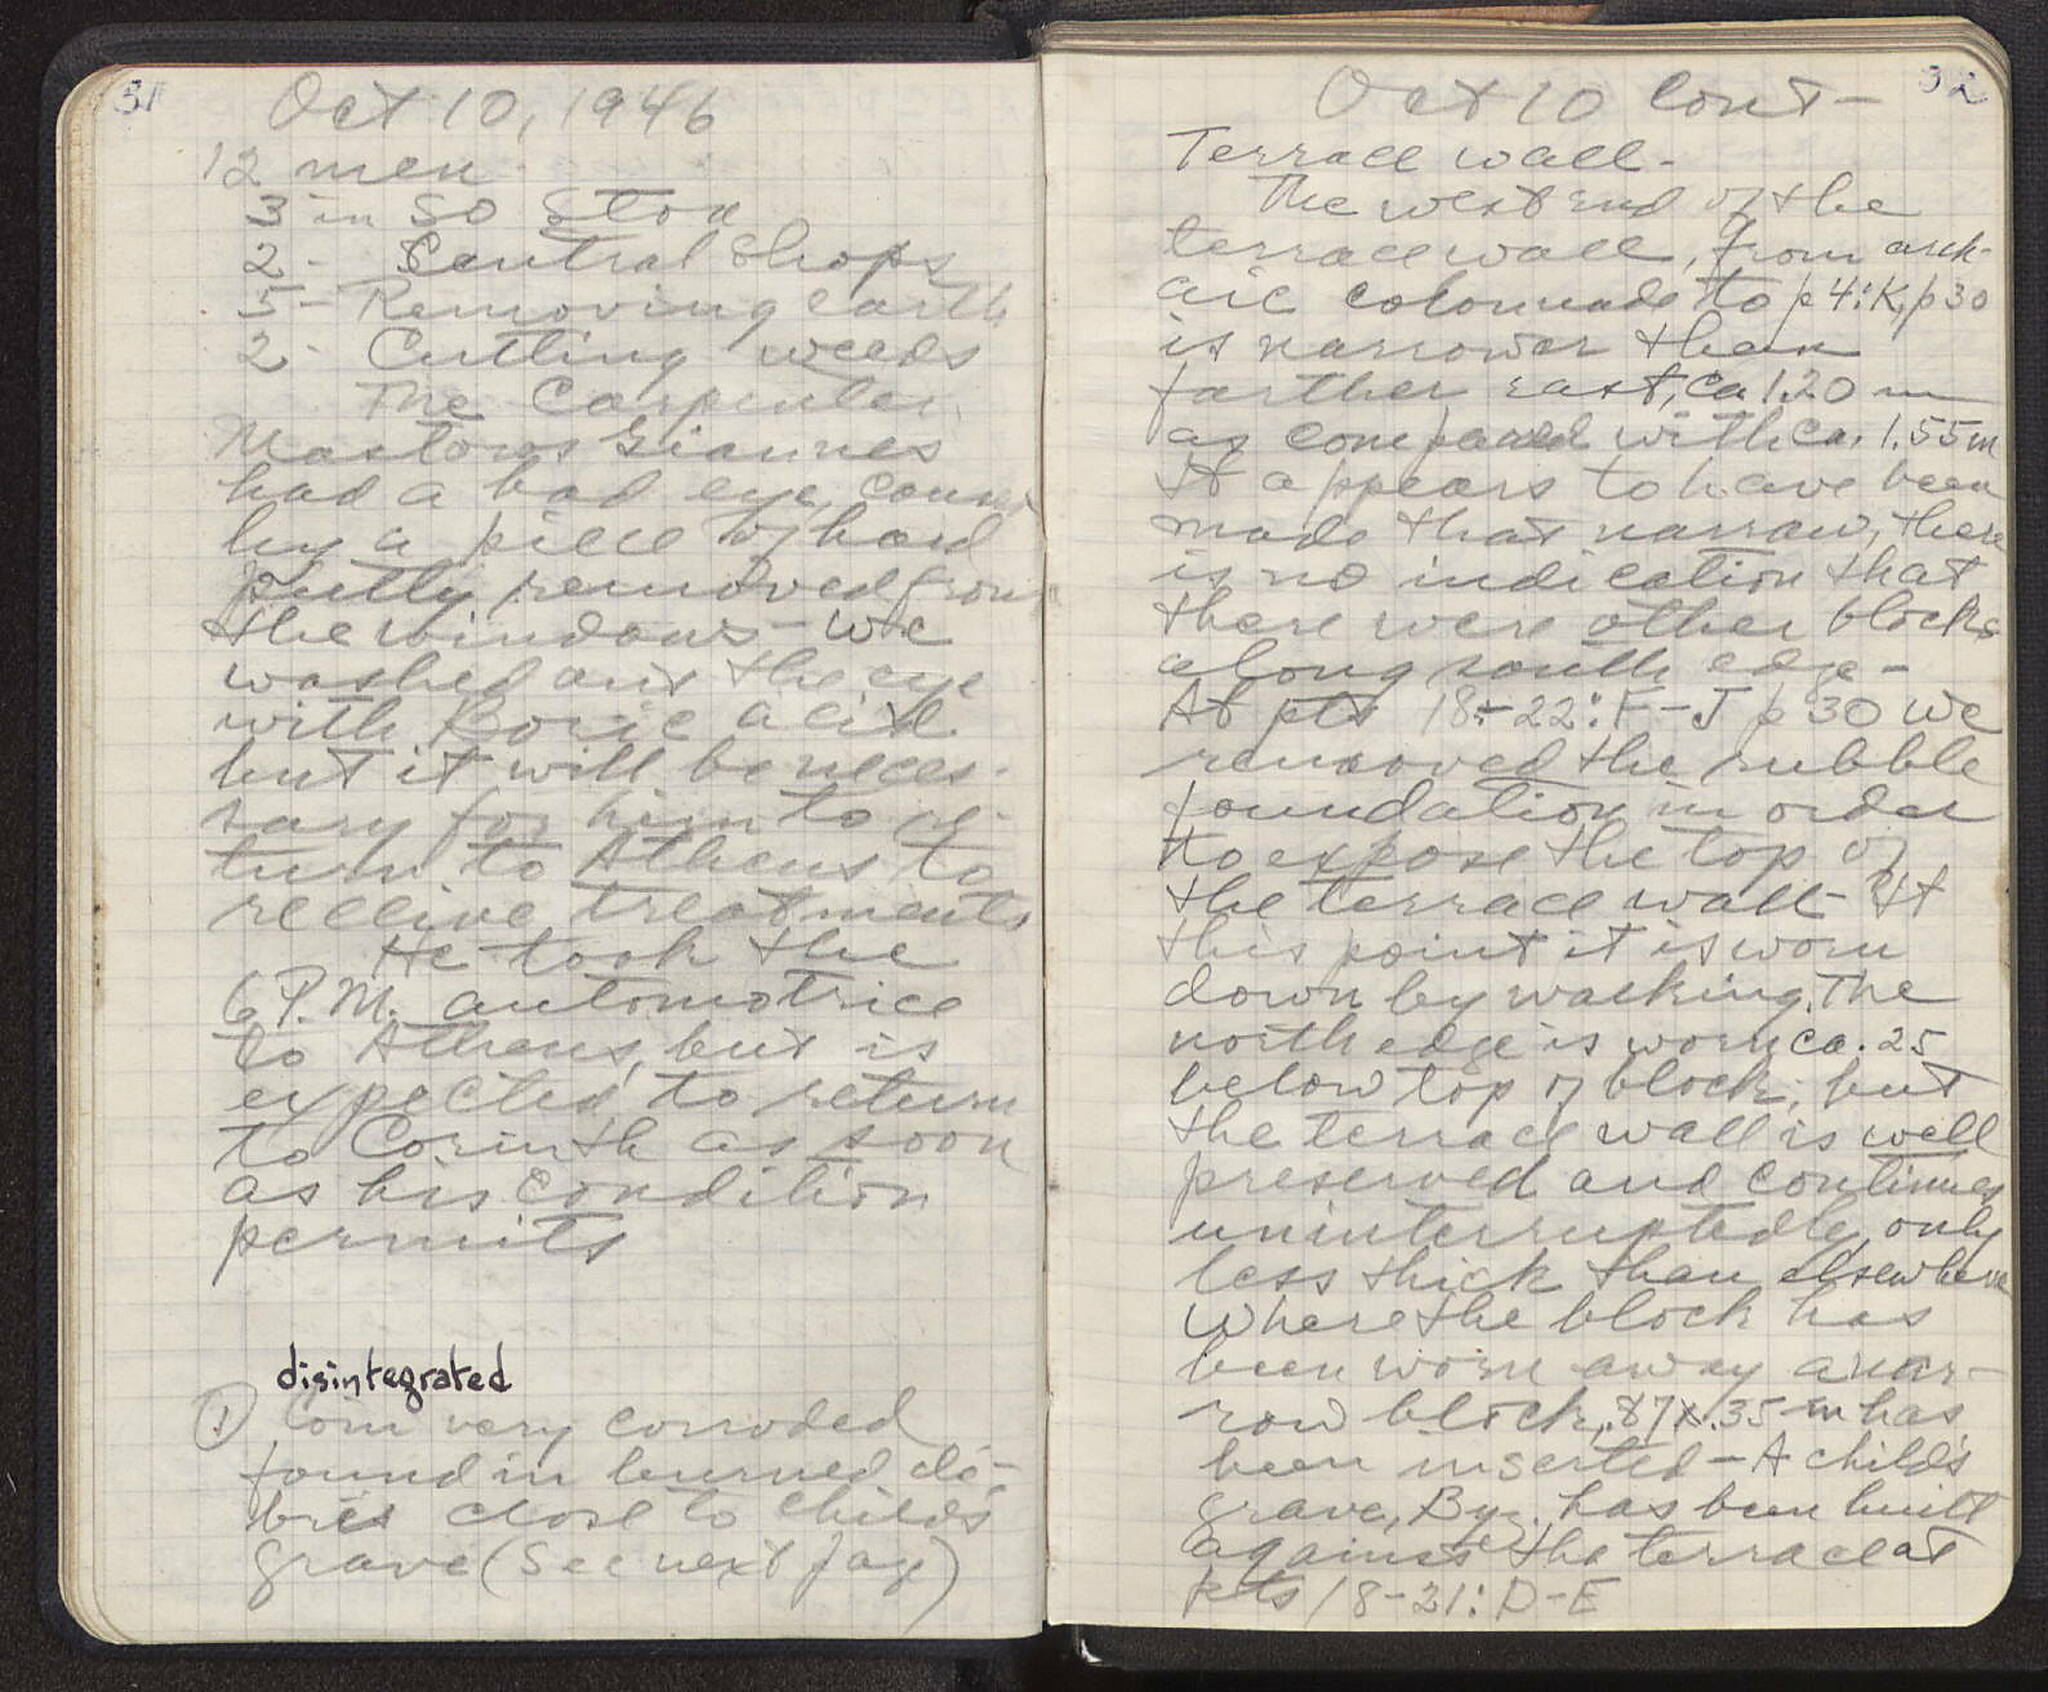 31
Oct 10, 1946
12 men
3 in So Stoa
2 - Central Shops
5 - Removing earth
2 - Cutling weeds
The Carpenter
Mastoros Giannes
had a bad eye, caused
by a piece of hard
putty removed from
the windows - we
washed out the eye
with Boric acid
but it will be neces-
sary for him to re-
turn to Athens to
receive treatments
He took the
6 P.M. automotrice
to Athens, but is
expected to return
to Corinth as soon
as his condition
permits
disintegrated
① Coin very corroded
found in burned dé-
bris close to child's
grave (See next page)
32
Oct 10 Cont -
Terrace wall -
The west end of the
terrace wall, from arch-
aic colonnade to p 4:K, p 30
is narrower than
farther east, ca 1.20 m
as compared with ca. 1.55 m
It appears to have been
made that narrow, there
is no indication that
there were other blocks
along south edge -
At pts 18-22: F-J p 30 we
removed the rubble
foundation in order
to expose the top of
the terrace wall - At
this point it is worn
down by walking. The
north edge is worn ca. 25
below top of block, but
the terrace wall is well
preserved and continues
uninterruptedly, only
less thick than elsewhere
Where the block has
been worn away a nar-
row block, .87 x .35 m has
been inserted - A child's
grave, Byz. has been built
against the terrace at
pts 18-21: D-E